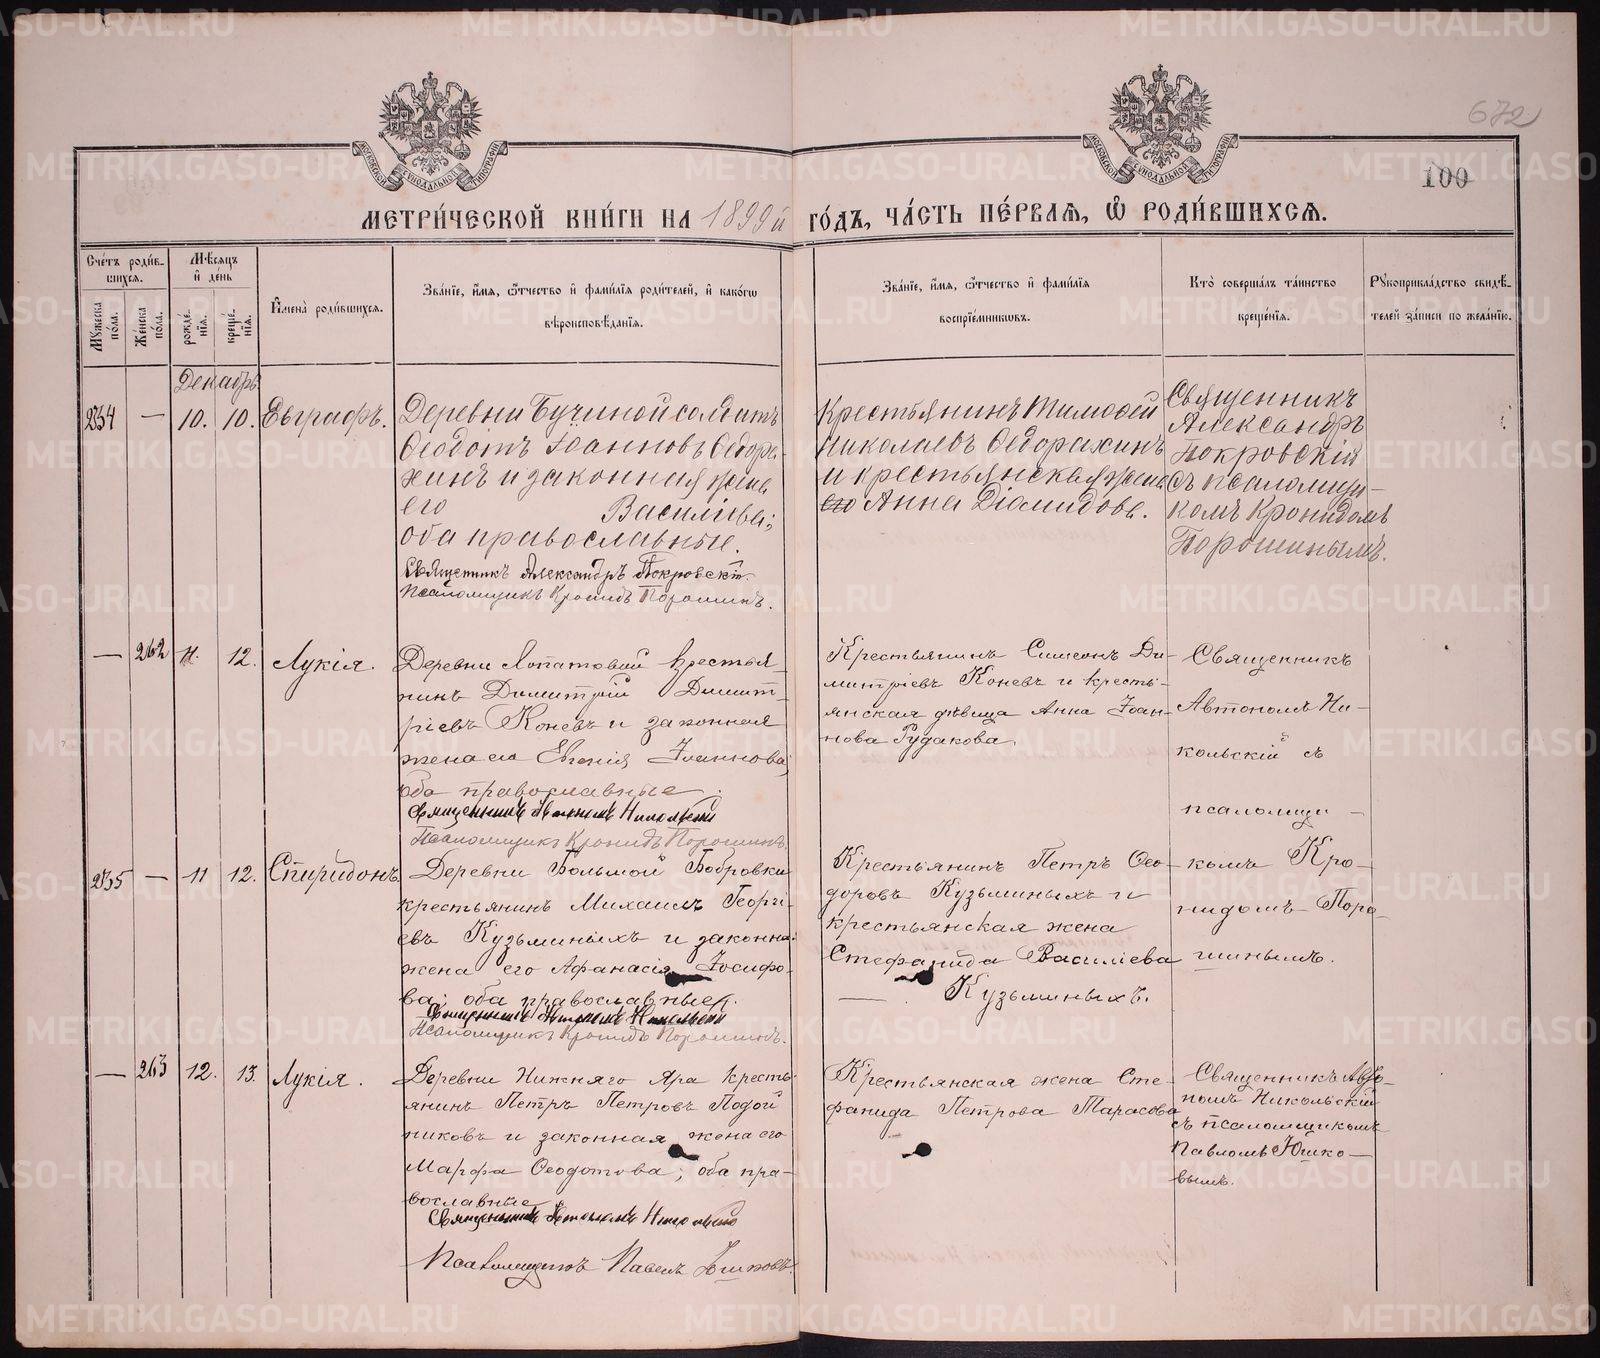 672
100
МЕТРИ́ЧЕСКОЙ КНИ́ГИ НА 1899й ГО́ДЪ, ЧА́СТЬ ПЕ́РВАѦ, Ѡ҆ РОДИ́ВШИХСѦ.
Сче́тъ роди́в-
шихсѧ.
Мꙋ́жеска по́ла.
Же́нска по́ла.
Мѣ́сѧцъ и҆ де́нь
рожде́-
нїѧ.
креще́-
нїѧ.
И҆мена̀ роди́вшихсѧ.
Зва́нїе, и҆́мѧ, ѻ҆́тчество и҆ фами́лїѧ роди́телей, и҆ како́гѡ
вѣроисповѣ́данїѧ.
Зва́нїе, и҆́мѧ, ѻ҆́тчество и҆ фами́лїѧ
воспрїе́мникѡвъ.
Кто̀ соверша́лъ та́инство
креще́нїѧ.
Рꙋкоприкла́дство свидѣ́-
телей за́писи по жела́нїю.
Декабрь
234 — 10. 10. Евграфъ.
Деревни Бучиной солдатъ
Ѳеодотъ Іоанновъ Ѳедора-
хинъ и законная жена
его Василіева;
оба православные.
Священникъ Александръ Покровскій.
Псаломщикъ Кронидъ Порошинъ.
Крестьянинъ Тимоѳей
Николаевъ Ѳедорахинъ
и крестьянская жена
его Анна Діамидова.
Священникъ
Александръ
Покровскій
съ псаломщи-
комъ Кронидомъ
Порошинымъ.
— 262 11. 12. Лукія.
Деревни Лопатовой крестья-
нинъ Димитрій Димит-
ріевъ Коневъ и законная
жена его Евгенія Іоаннова;
оба православные.
Священникъ Автономъ Никольскій
Псаломщикъ Кронидъ Порошинъ.
Крестьянинъ Симеонъ Ди-
митріевъ Коневъ и кресть-
янская дѣвица Анна Іоан-
нова Рудакова.
Священникъ
Автономъ Ни-
кольскій съ
псаломщи-
комъ Кро-
нидомъ Поро-
шинымъ.
235 — 11 12. Спиридонъ.
Деревни Большой Бобровки
крестьянинъ Михаилъ Георгі-
евъ Кузьминыхъ и законная
жена его Афанасія Іосифо-
ва; оба православные.
Священникъ Автономъ Никольскій
Псаломщикъ Кронидъ Порошинъ.
Крестьянинъ Петръ Ѳео-
доровъ Кузьминыхъ и
крестьянская жена
Стефанида Василіева
— Кузьминыхъ.
— 263 12. 13. Лукія.
Деревни Нижняго Яра кресть-
янинъ Петръ Петровъ Подой
никовъ и законная жена его
Марфа Ѳеодотова; оба пра-
вославные
Священникъ Автономъ Никольскій
Псаломщикъ Павелъ Юшковъ.
Крестьянская жена Сте-
фанида Петрова Тарасова
Священникъ Авто-
номъ Никольскій
съ псаломщикомъ
Павломъ Юшко-
вымъ.
METRIKI.GASO-URAL.RU